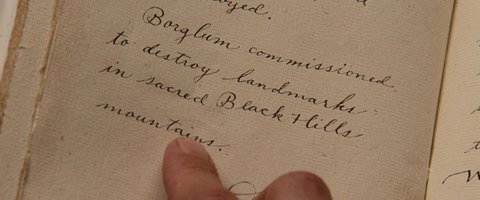 Borglum commissioned
to destroy landmarks
in sacred Black Hills
mountains.